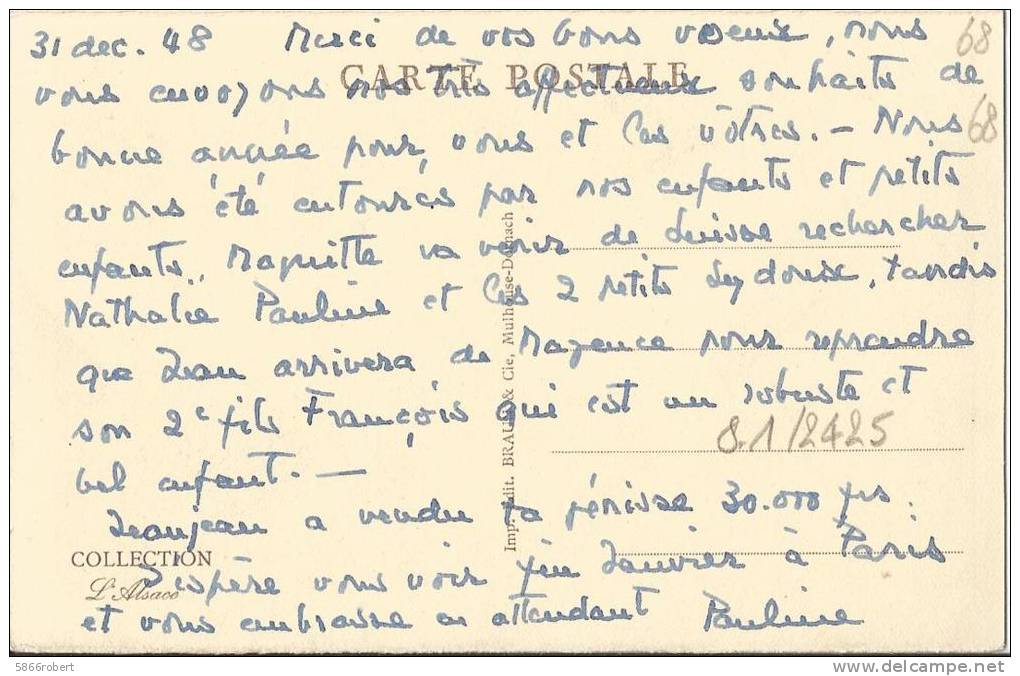 31 dec. 48 Merci de vos bons voeux, nous
68
CARTE POSTALE
vous envoyons nos très affectueux souhaits de
bonne année pour vous et les vôtres. - Nous
68
avons été entourés par nos enfants et petits
enfants, Maguitte va venir de Suisse rechercher
Nathalie Pauline et les 2 petits Seydoux, tandis
que Jean arrivera de Mayence pour reprendre
son 2e fils François qui est un robuste et
8.1/2425
bel enfant. -
Jeanjean a vendu sa génisse 30.000 frs.
Imp. Edit. BRAUN & Cie, Mulhouse-Dornach
COLLECTION
L'Alsace
J'espère vous voir fin Janvier à Paris
et vous embrasse en attendant Pauline
5866robert
delcampe.net